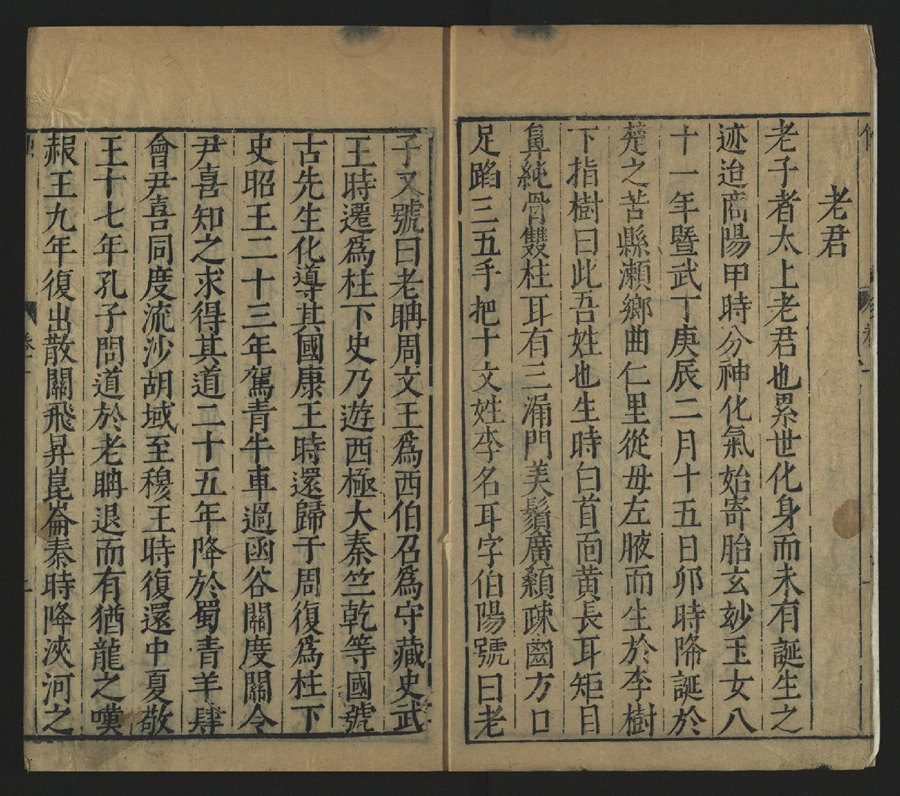 老君
老子者太上老君也累世化身而未有誕生之
迹迨商陽甲時分神化氣始寄胎玄妙玉女八
十一年暨武丁庚辰二月十五日卯時降誕於
楚之苦縣瀨鄉曲仁里從母左腋而生於李樹
下指樹曰此吾姓也生時白首面黃長耳矩目
鼻純骨雙柱耳有三漏門美鬚廣顙疎齒方口
足蹈三五手把十文姓李名耳字伯陽號曰老
子又號曰老聃周文王爲西伯召爲守藏史武
王時遷爲柱下史乃遊西極大秦竺乾等國號
古先生化導其國康王時還歸于周復爲柱下
史昭王二十三年駕青牛車過函谷關度關令
尹喜知之求得其道二十五年降於蜀青羊肆
會尹喜同度流沙胡域至穆王時復還中夏敬
王十七年孔子問道於老聃退而有猶龍之嘆
赧王九年復出散關飛昇崑崙秦時降浹河之